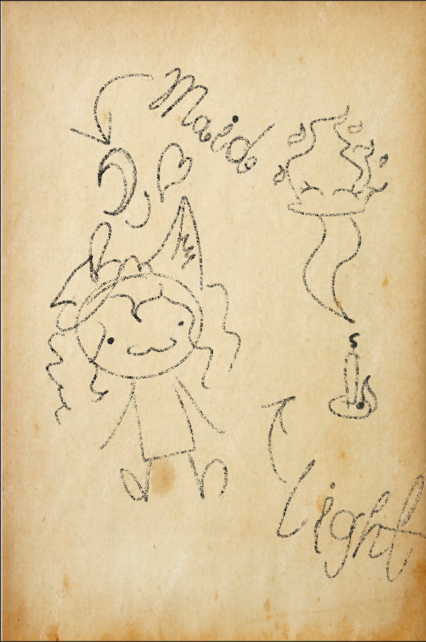 Maid
Light